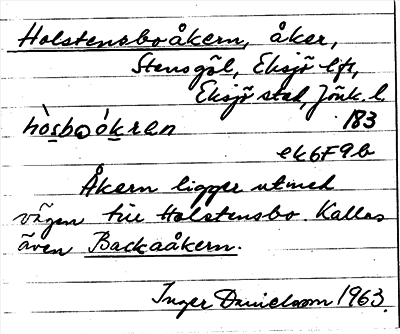 Holstensboåkern, åker,
Stensgöl, Eksjö lfs,
Eksjö stad, Jönk. l.
hòsboókran 183
ek 6F9b
Åkern ligger utmed
vägen till Holstensbo. Kallas
även Backaåkern.
Inger Danielsson 1963.